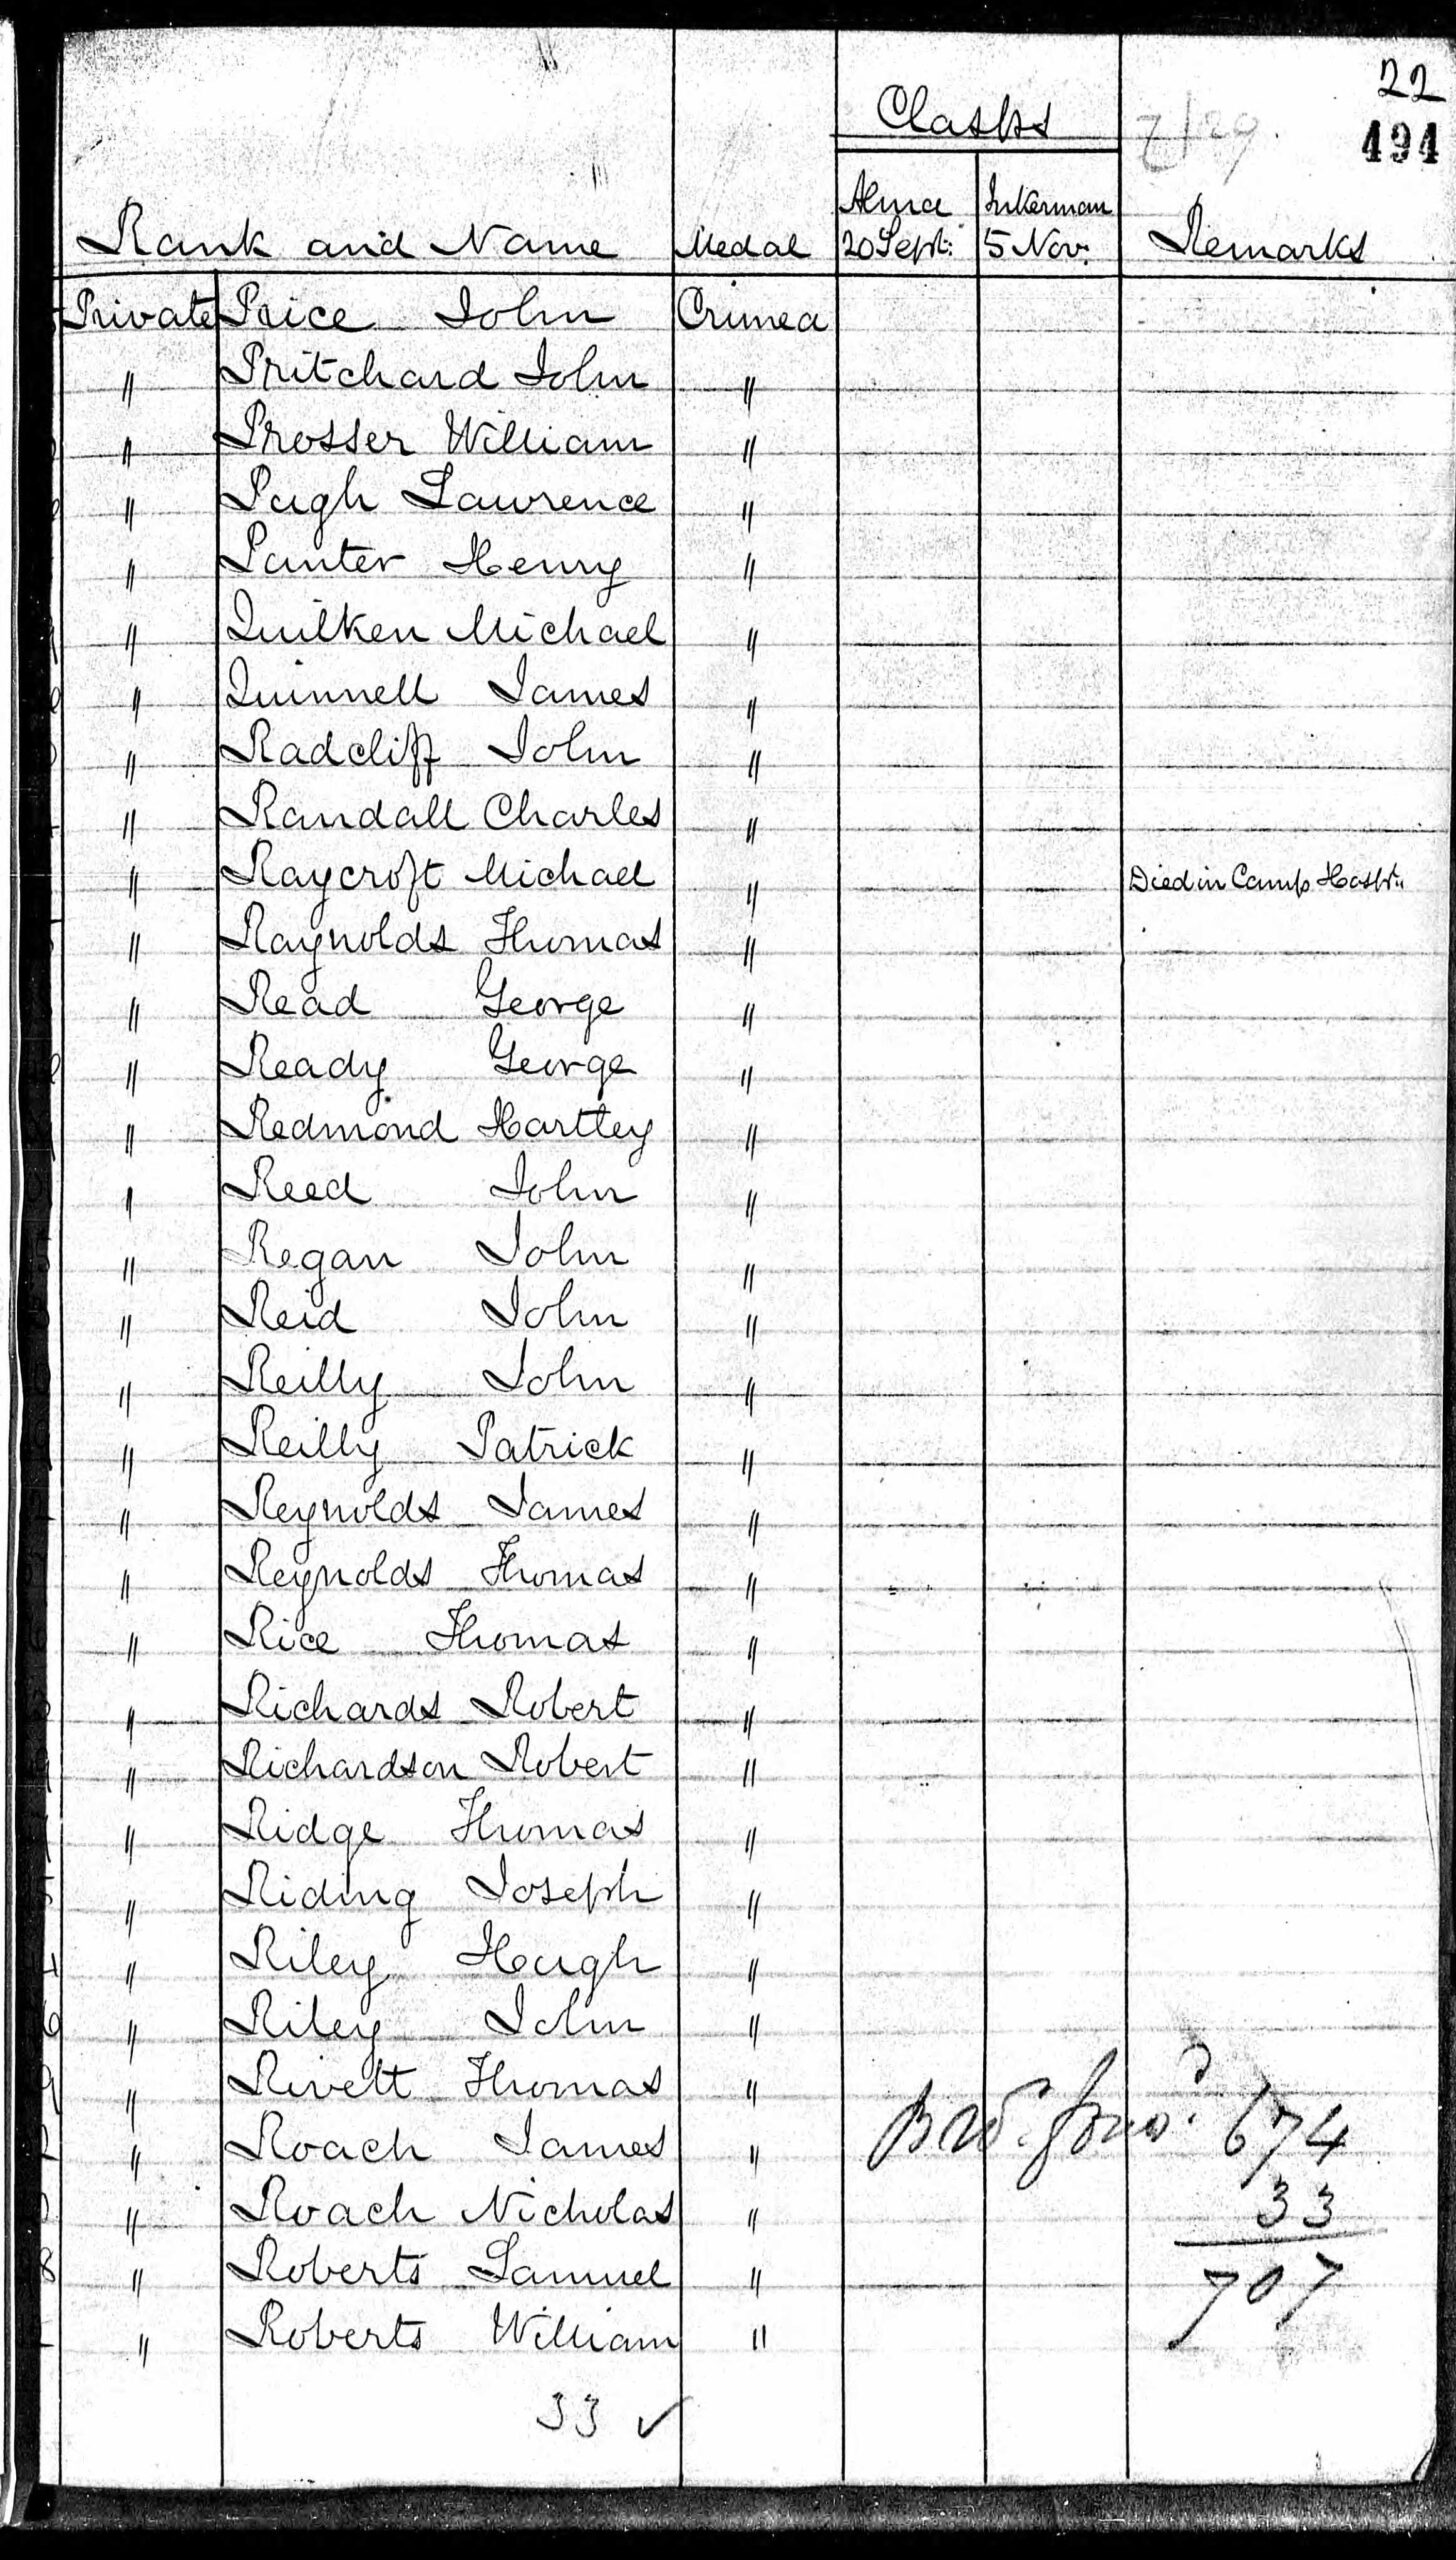 22
Clasps 7/129 494
Alma Inkerman
Rank and Name Medal 20 Sept: 5 Nov: Remarks
Private Price John Crimea
" Pritchard John "
" Prosser William "
" Pugh Lawrence "
" Punter Henry "
" Quilken Michael "
" Quinnell James "
" Radcliff John "
" Randall Charles "
" Raycroft Michael " Died in Camp Hospl.
" Raynolds Thomas "
" Read George "
" Ready George "
" Redmond Hartley "
" Reed John "
" Regan John "
" Reid John "
" Reilly John "
" Reilly Patrick "
" Reynolds James "
" Reynolds Thomas "
" Rice Thomas "
" Richards Robert "
" Richardson Robert "
" Ridge Thomas "
" Riding Joseph "
" Riley Hugh "
" Riley John "
" Rivett Thomas "
" Roach James " Brd. forwd. 674
" Roach Nicholas " 33
" Roberts Samuel " 707
" Roberts William "
33 ✓